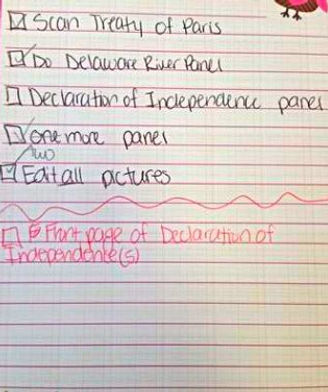 Scan Treaty of Paris
Do Delaware River Panel
Declaration of Independence panel
one more panel
two
Edit all pictures
Front page of Declaration of
Independente(s)